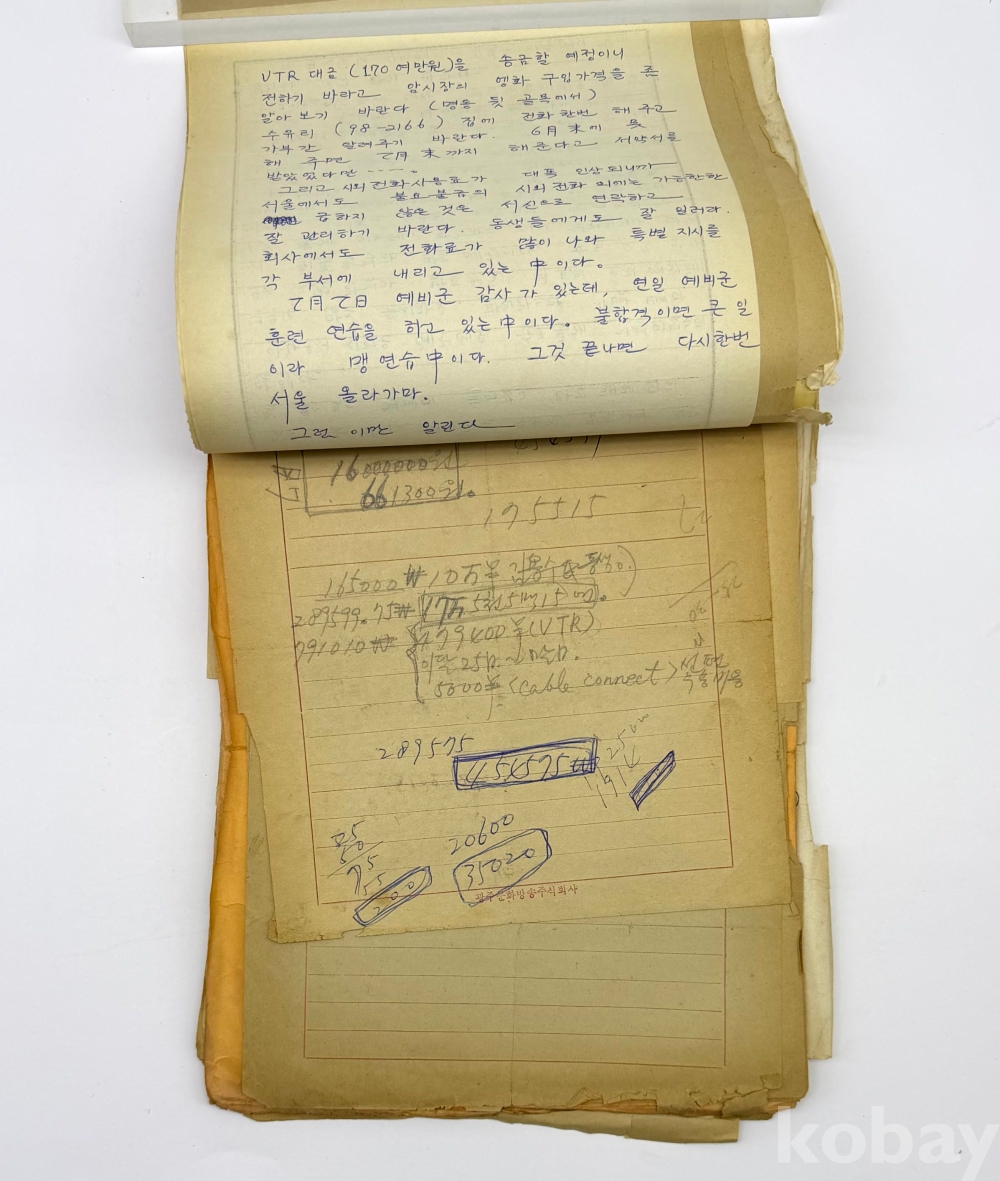 VTR 대금 (170 여만원)을 송금할 예정이니
전하기 바라고 암시장의 엥화 구입가격을 존
알아 보기 바란다 (명동 뒷 골목에서)
수유리 (98-2166) 집에 전화 한번 해 주고
가부간 알려주기 바란다. 6月 末에
해 주면 7月 末 까지 해준다고 서약서를
받았었다만 -----.
그리고 시외 전화사용료가 대폭 인상되니까
서울에서도 불요불급의 시외 전화 외에는 가능한한
급하지 않은 것은 서신으로 연락하고
잘 관리하기 바란다. 동생들에게도 잘 일러라.
회사에서도 전화료가 많이 나와 특별 지시를
각 부서에 내리고 있는 中이다.
7月 7日 예비군 감사가 있는데, 연일 예비군
훈련 연습을 하고 있는中이다. 불합격이면 큰 일
이라 맹연습中이다. 그것 끝나면 다시한번
서울 올라가마.
그럼 이만 알린다
16000000원
661300원.
175515
165000₩ 10万￥
289599.75₩ 17万5천5백15엔.
791010₩ 479400￥(VTR)
이달 25日
5000￥ <cable connect>
289575
454575₩
20600
35020
75
200
광주문화방송주식회사
kobay